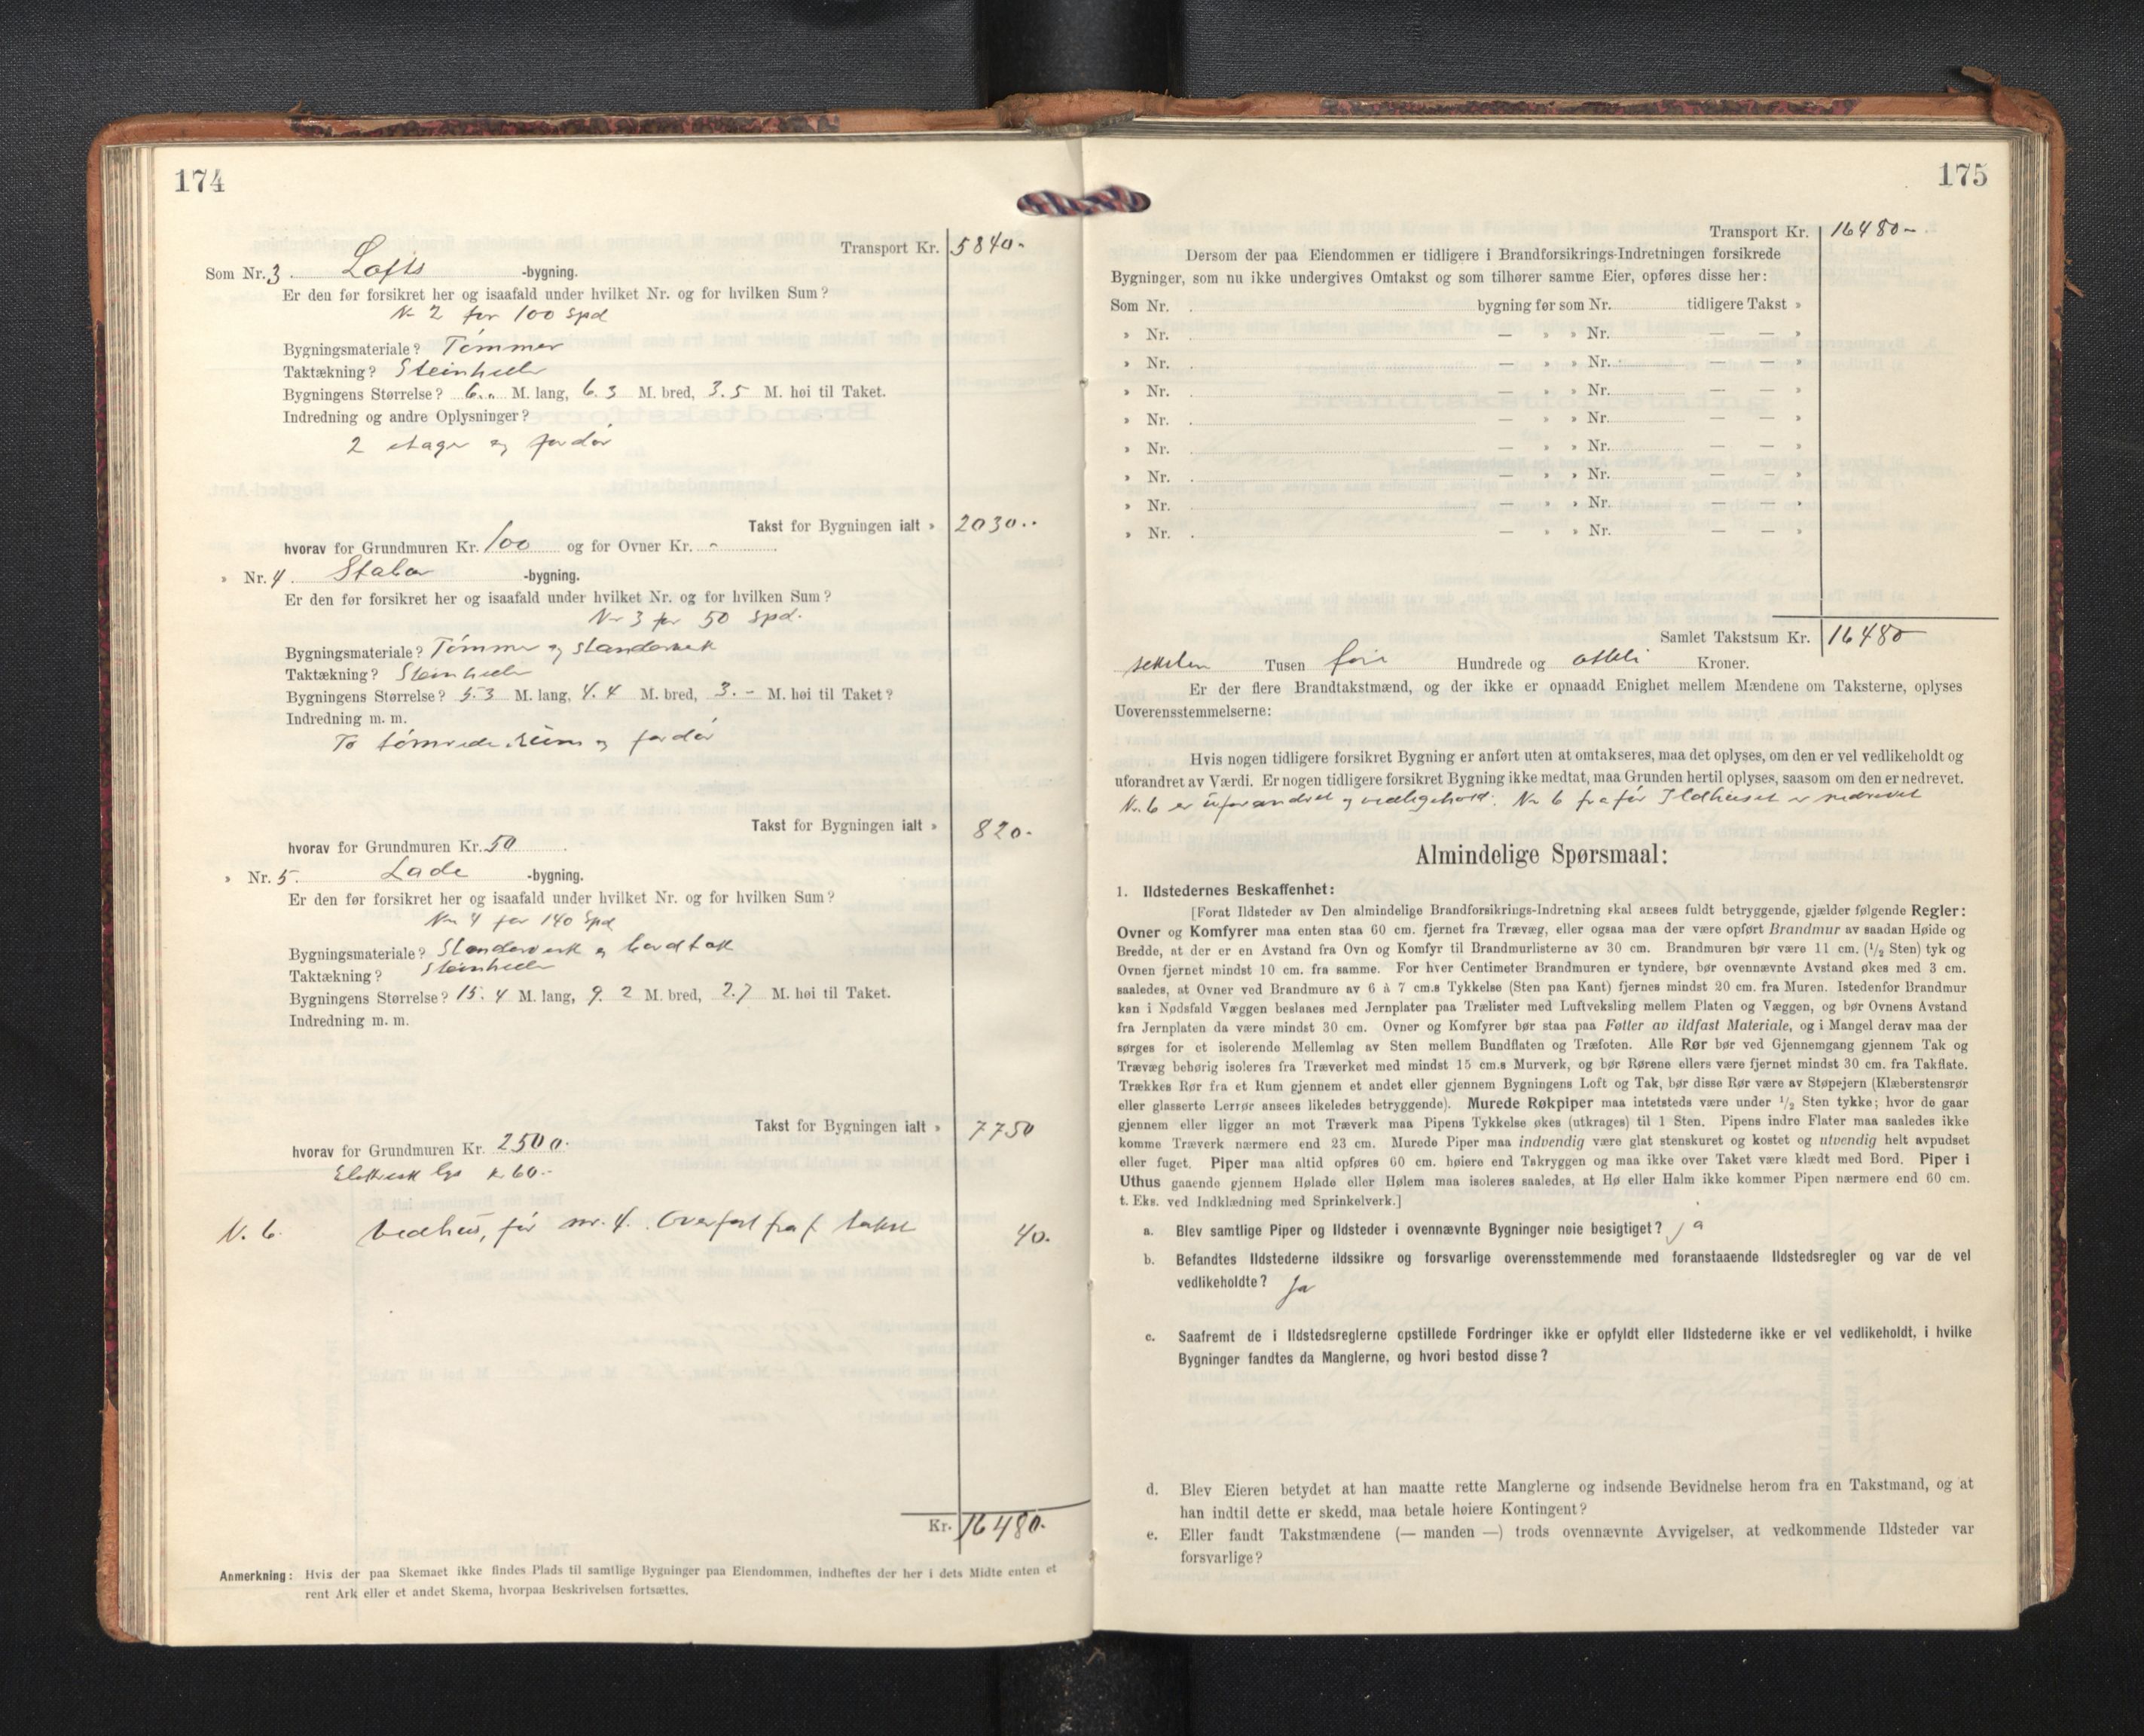 174
Transport Kr. 5840.-
Som Nr. 3 Lofts -bygning.
Er den før forsikret her og isaafald under hvilket Nr. og for hvilken Sum?
Nr 2 for 100 Spd
Bygningsmateriale? Tømmer
Taktækning? Steinheller
Bygningens Størrelse? 6.. M. lang, 6.3 M. bred, 3.5 M. høi til Taket.
Indredning og andre Oplysninger?
2 etager og fordør
Takst for Bygningen ialt » 2030..
hvorav for Grundmuren Kr. 100 og for Ovner Kr. -
» Nr. 4 Stabur -bygning.
Er den før forsikret her og isaafald under hvilket Nr. og for hvilken Sum?
Nr 3 for 50 Spd.
Bygningsmateriale? Tømmer og standerverk
Taktækning? Steinheller
Bygningens Størrelse? 5.3 M. lang, 4.4 M. bred, 3.- M. høi til Taket?
Indredning m. m.
To tømrede rum og fordør
Takst for Bygningen ialt » 820.
hvorav for Grundmuren Kr. 50
» Nr. 5. Lade -bygning.
Er den før forsikret her og isaafald under hvilket Nr. og for hvilken Sum?
Nr 4 for 140 Spd
Bygningsmateriale? Standerverk og bordtak
Taktækning? Steinheller
Bygningens Størrelse? 15.4 M. lang, 9.2 M. bred, 2.7 M. høi til Taket.
Indredning m. m.
Takst for Bygningen ialt » 7750
hvorav for Grundmuren Kr. 2500.
Elektrisk lys kr 60.-
N. 6. Vedhus, før nr. 4. Overført fra f. takst 40.
Kr. 16480.
Anmerkning: Hvis der paa Skemaet ikke findes Plads til samtlige Bygninger paa Eiendommen, indheftes der her i dets Midte enten et
rent Ark eller et andet Skema, hvorpaa Beskrivelsen fortsættes.
175
Transport Kr. 16480-
Dersom der paa Eiendommen er tidligere i Brandforsikrings-Indretningen forsikrede
Bygninger, som nu ikke undergives Omtakst og som tilhører samme Eier, opføres disse her:
Som Nr. bygning før som Nr. tidligere Takst »
» Nr. — » » Nr. — — »
» Nr. — » » Nr. — — »
» Nr. — » » Nr. — — »
» Nr. — » » Nr. — — »
» Nr. — » » Nr. — — »
» Nr. — » » Nr. — — »
» Nr. — » » Nr. — — »
» Nr. — » » Nr. — — »
Samlet Takstsum Kr. 16480
seksten Tusen fire Hundrede og otteti Kroner.
Er der flere Brandtakstmænd, og der ikke er opnaadd Enighet mellem Mændene om Taksterne, oplyses
Uoverensstemmelserne:
Hvis nogen tidligere forsikret Bygning er anført uten at omtakseres, maa det oplyses, om den er vel vedlikeholdt og
uforandret av Værdi. Er nogen tidligere forsikret Bygning ikke medtat, maa Grunden hertil oplyses, saasom om den er nedrevet.
Nr. 6 er uforandret og vedligehold. Nr 6 fra før Ildhuset er nedrevet
Almindelige Spørsmaal:
1. Ildstedernes Beskaffenhet:
[Forat Ildsteder av Den almindelige Brandforsikrings-Indretning skal ansees fuldt betryggende, gjælder følgende Regler:
Ovner og Komfyrer maa enten staa 60 cm. fjernet fra Trævæg, eller ogsaa maa der være opført Brandmur av saadan Høide og
Bredde, at der er en Avstand fra Ovn og Komfyr til Brandmurlisterne av 30 cm. Brandmuren bør være 11 cm. (1/2 Sten) tyk og
Ovnen fjernet mindst 10 cm. fra samme. For hver Centimeter Brandmuren er tyndere, bør ovennævnte Avstand økes med 3 cm.
saaledes, at Ovner ved Brandmure av 6 à 7 cm.s Tykkelse (Sten paa Kant) fjernes mindst 20 cm. fra Muren. Istedenfor Brandmur
kan i Nødsfald Væggen beslaaes med Jernplater paa Trælister med Luftveksling mellem Platen og Væggen, og bør Ovnens Avstand
fra Jernplaten da være mindst 30 cm. Ovner og Komfyrer bør staa paa Føtter av ildfast Materiale, og i Mangel derav maa der
sørges for et isolerende Mellemlag av Sten mellem Bundflaten og Træfoten. Alle Rør bør ved Gjennemgang gjennem Tak og
Trævæg behørig isoleres fra Træverket med mindst 15 cm.s Murverk, og bør Rørene ellers være fjernet mindst 30 cm. fra Takflate.
Trækkes Rør fra et Rum gjennem et andet eller gjennem Bygningens Loft og Tak, bør disse Rør være av Støpejern (Klæberstensrør
eller glasserte Lerrør ansees likeledes betryggende). Murede Røkpiper maa intetsteds være under 1/2 Sten tykke; hvor de gaar
gjennem eller ligger an mot Træverk maa Pipens Tykkelse økes (utkrages) til 1 Sten. Pipens indre Flater maa saaledes ikke
komme Træverk nærmere end 23 cm. Murede Piper maa indvendig være glat stenskuret og kostet og utvendig helt avpudset
eller fuget. Piper maa altid opføres 60 cm. høiere end Takryggen og maa ikke over Taket være klædt med Bord. Piper i
Uthus gaaende gjennem Hølade eller Hølem maa isoleres saaledes, at Hø eller Halm ikke kommer Pipen nærmere end 60 cm.
t. Eks. ved Indklædning med Sprinkelverk.]
a. Blev samtlige Piper og Ildsteder i ovennævnte Bygninger nøie besigtiget? ja
b. Befandtes Ildstederne ildssikre og forsvarlige overensstemmende med foranstaaende Ildstedsregler og var de vel
vedlikeholdte? Ja
c. Saafremt de i Ildstedsreglerne opstillede Fordringer ikke er opfyldt eller Ildstederne ikke er vel vedlikeholdt, i hvilke
Bygninger fandtes da Manglerne, og hvori bestod disse?
d. Blev Eieren betydet at han maatte rette Manglerne og indsende Bevidnelse herom fra en Takstmand, og at
han indtil dette er skedd, maa betale høiere Kontingent?
e. Eller fandt Takstmændene (— manden —) trods ovennævnte Avvigelser, at vedkommende Ildsteder var
forsvarlige?